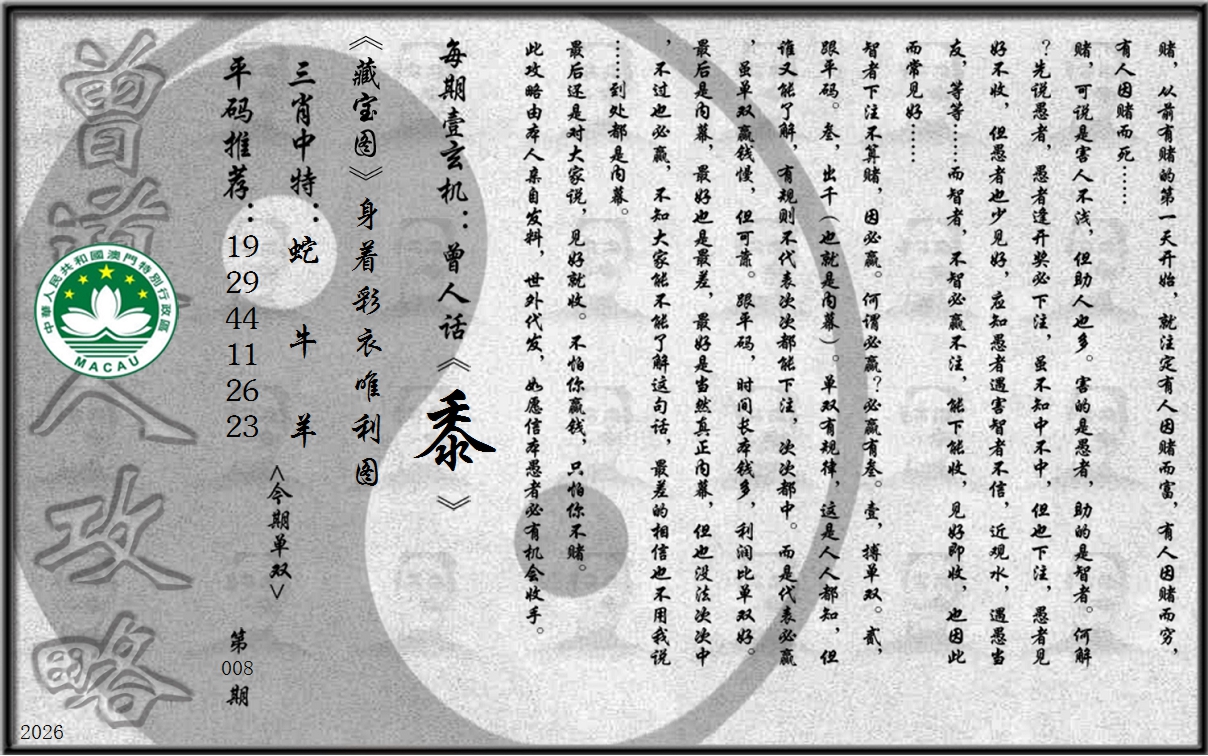 赌，从前有赌的第一天开始，就注定有人因赌而富，有人因赌而穷，
有人因赌而死……
赌，可说是害人不浅，但助人也多。害的是愚者，助的是智者。何解
？先说愚者，愚者逢开奖必下注，虽不知中不中，但也下注，愚者见
好不收，但愚者也少见好，应知愚者遇害智者不信，近观水，遇愚当
友，等等……而智者，不智必赢不注，能下能收，见好即收，也因此
而常见好……
智者下注不算赌，因必赢。何谓必赢？必赢有叁。壹，搏单双。贰，
跟平码。叁，出千（也就是内幕）。单双有规律，这是人人都知，但
谁又能了解，有规则不代表次次都能下注，次次都中。而是代表必赢
，虽单双赢钱慢，但可靠。跟平码，时间长本钱多，利润比单双好。
最后是内幕，最好也是最差，最好是当然真正内幕，但也没法次次中
，不过也必赢，不知大家能不能了解这句话，最差的相信也不用我说
……到处都是内幕。
最后还是对大家说，见好就收。不怕你赢钱，只怕你不赌。
此攻略由本人亲自发料，世外代发，如愿信本愚者必有机会收手。
每期壹玄机：曾人话《黍》
《藏宝图》身着彩衣唯利图
三肖中特：蛇 牛 羊
<今期单双>
平码推荐：19 29 44 11 26 23
第008期
曾道人攻略
中華人民共和國澳門特別行政區
MACAU
2026